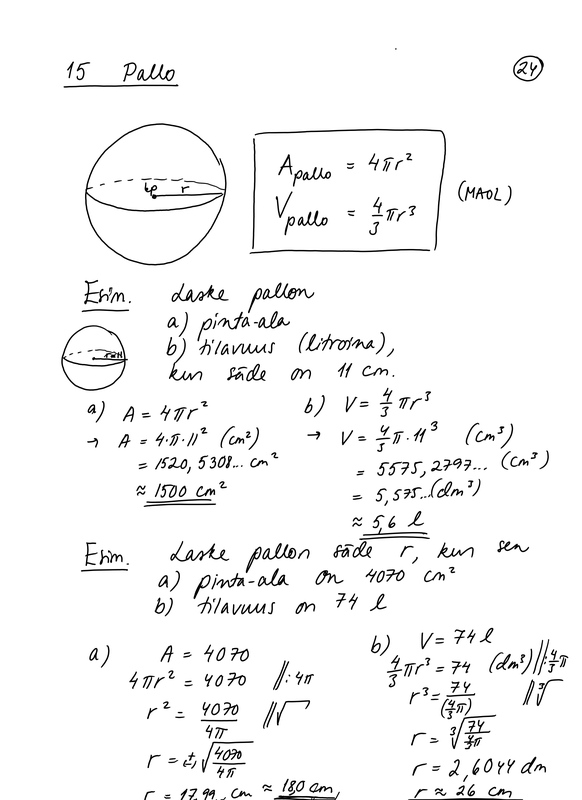 15 Pallo
24
kp r
A pallo = 4πr²
V pallo = 4/3 πr³
(MAOL)
Esim. Laske pallon
a) pinta-ala
b) tilavuus (litroina),
kun säde on 11 cm.
a) A = 4πr²
→ A = 4·π·11² (cm²)
= 1520,5308... cm²
≈ 1500 cm²
b) V = 4/3 πr³
→ V = 4/3 π·11³ (cm³)
= 5575,2797... (cm³)
= 5,575...(dm³)
≈ 5,6 l
Esim. Laske pallon säde r, kun sen
a) pinta-ala on 4070 cm²
b) tilavuus on 74 l
a) A = 4070
4πr² = 4070 ||:4π
r² = 4070/4π ||√
r = (±)√(4070/4π)
r = 17,99... cm ≈ 18,0 cm
b) V = 74 l
4/3 πr³ = 74 (dm³) ||:4/3 π
r³ = 74/(4/3 π) ||∛
r = ∛(74/(4/3 π))
r = 2,6044 dm
r ≈ 26 cm